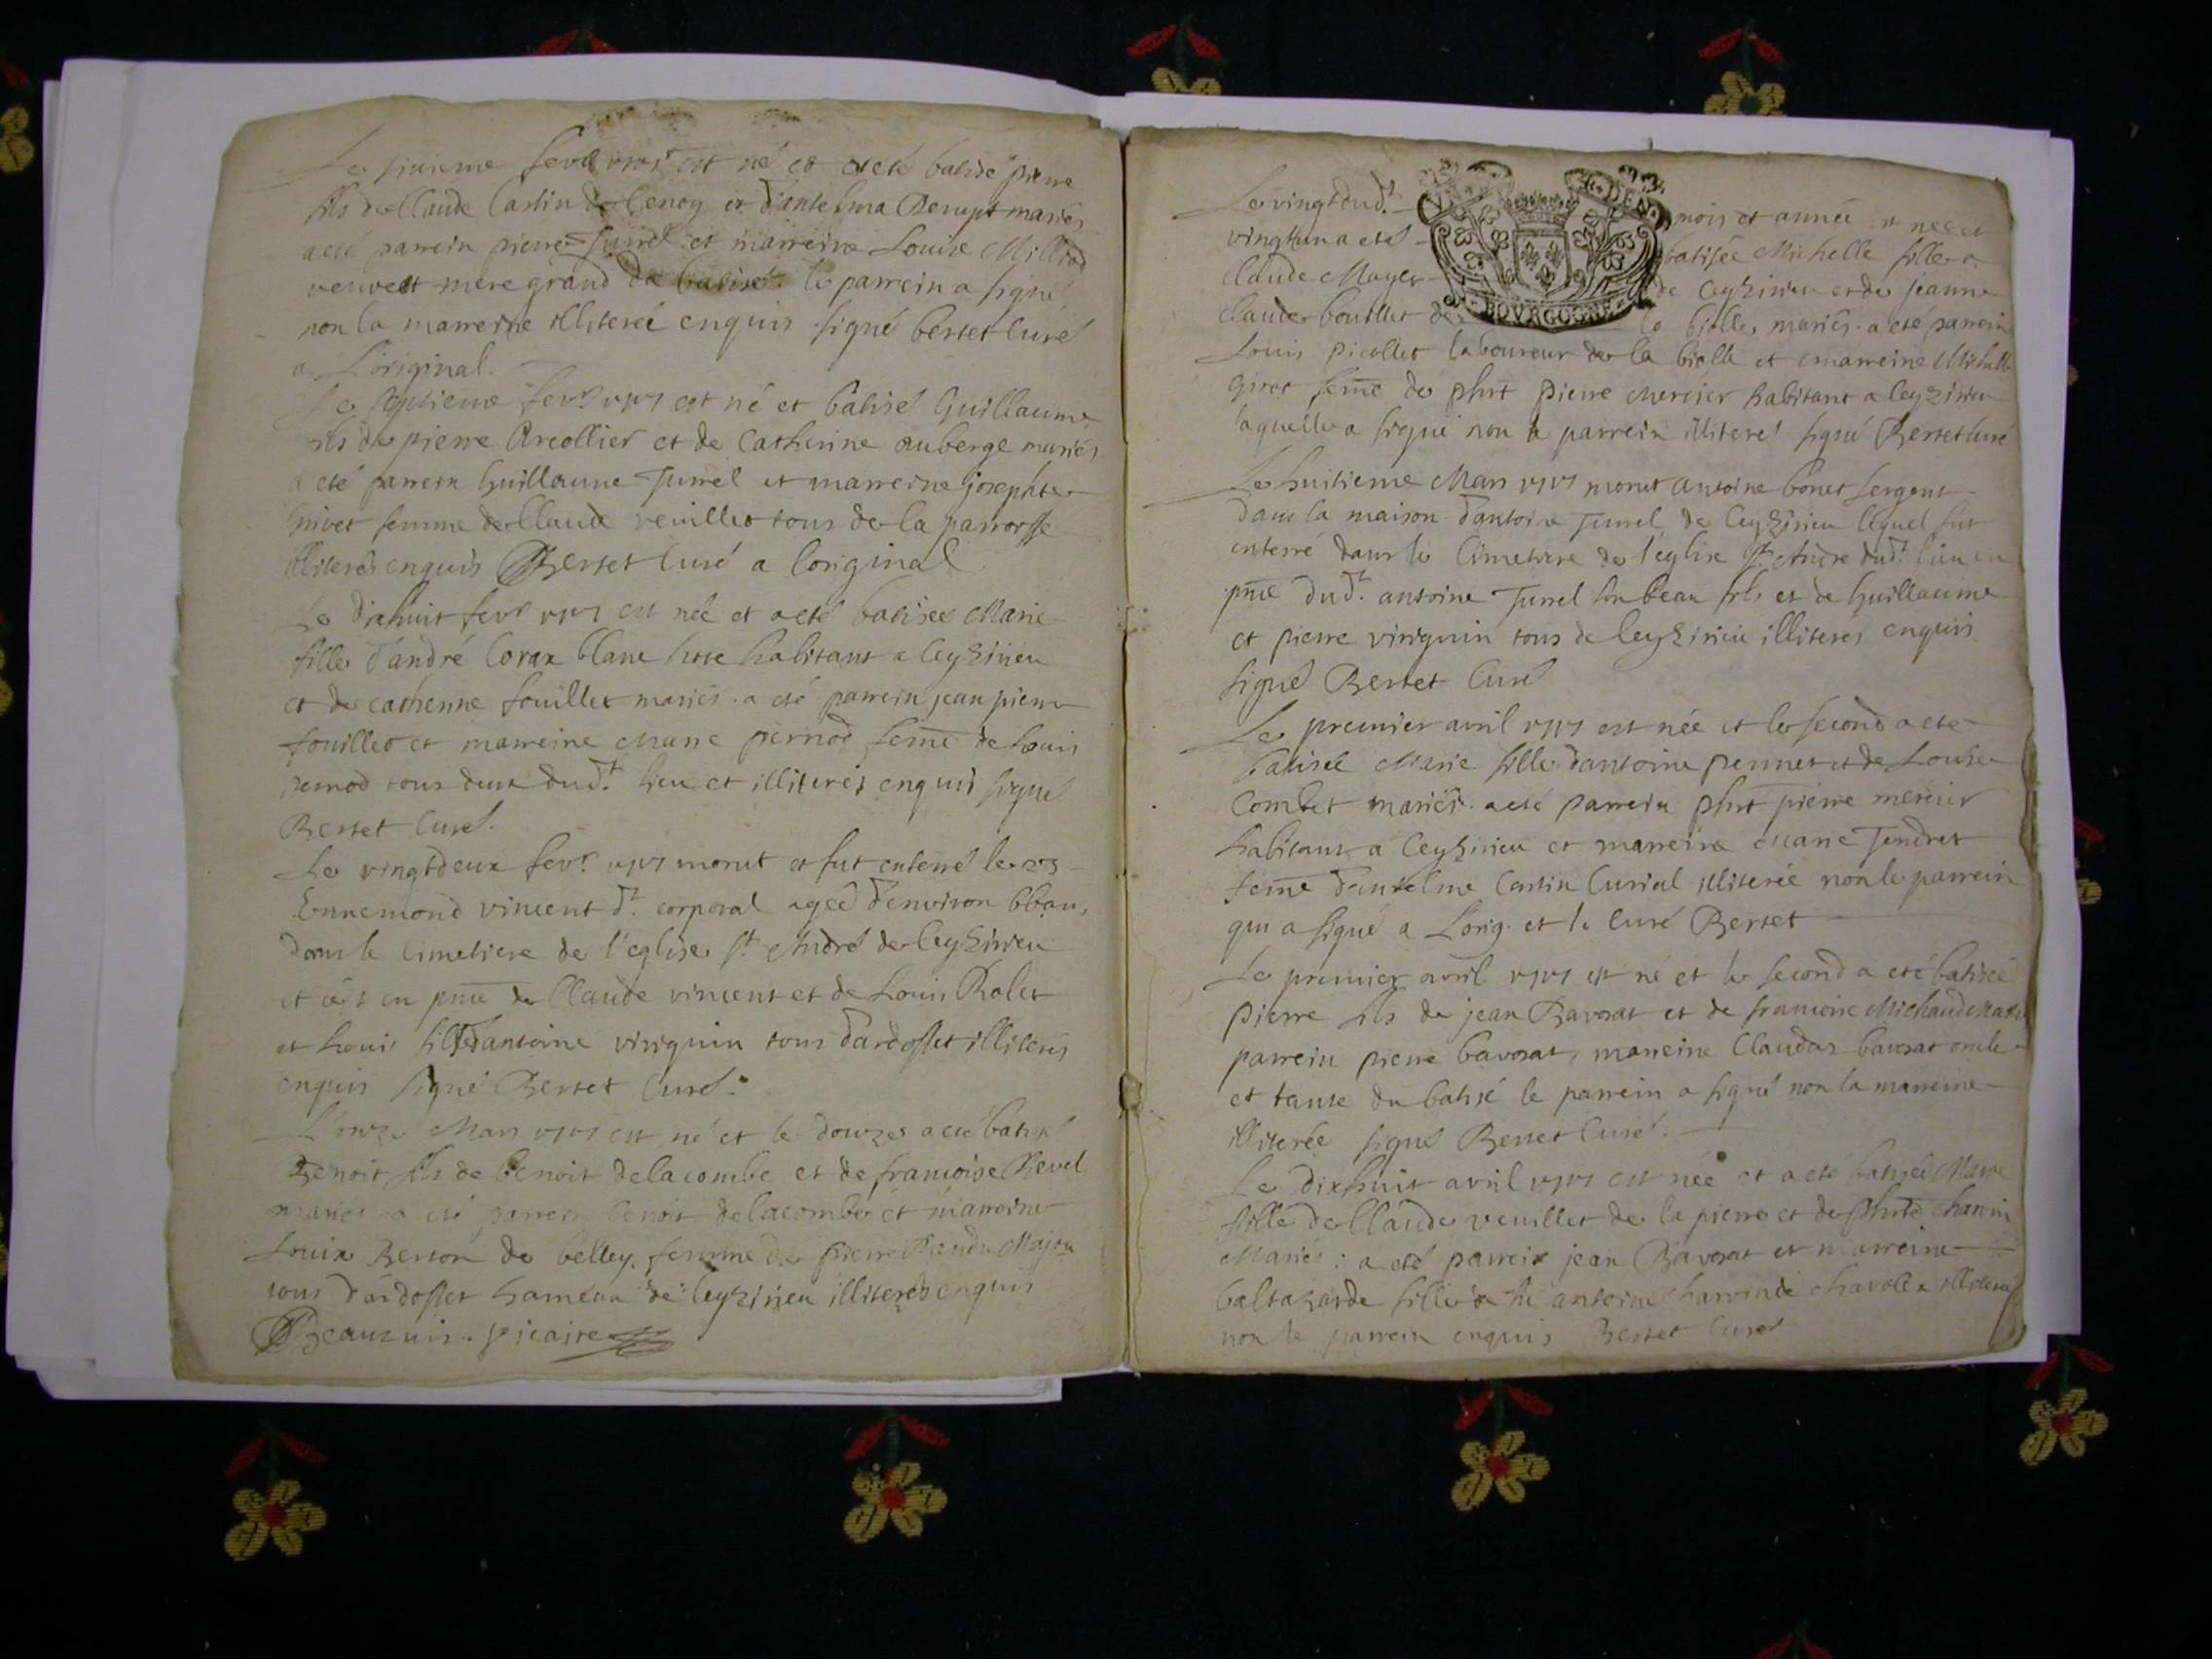 Le sixieme fevr 1717 est né et a eté batisé pierre
fils de Claude Castin de Cenoy et d'antelma Derupt mariés
a eté parrein pierre Jurrel et marreine Louise Milliod
veuve et mere grand du batisé. le parrein a signé
non la marreine illiterée enquis signé bertet Curé
a L'original.
Le septieme fevr 1717 est né et batisé Guillaume
fils de pierre Arcollier et de Catherine auberge mariés
a eté parrein Guillaume Jurrel et marreine josephte
Grivet femme de Claude veuillet tous de la parroisse
illiterés enquis Bertet Curé a loriginal
Le dixhuit fevr 1717 est née et a eté batisée Marie
fille d'andré Corax blanc habitant a Ceyzirieu
et de catherine fouillet mariés. a eté parrein jean pierre
fouillet et marreine Marie pernod feme de Louis
pernod tous deux dud.t lieu et illiterés enquis signé
Bertet Curé.
Le vingtdeux fevr. 1717 morut et fut enterré le 23
Ennemond vincent d.t corporal agée d'environ 66 an,
dans le Cimetiere de l'eglise s.t André de Ceyzirieu
et cest en pnce de Claude vincent et de Louis Rolet
et Louis fils d'antoine viriguin tous d'ardosset illiterés
enquis signé Bertet Curé.
L'onze Mars 1717 est né et le douze a eté batisé
Benoit fils de benoit delacombe et de francoise Revel
mariés a eté parrein benoit delacombe et marreine
Louise Berton de belley. femme de pierre Bandu Major
tous d'ardosset hameau de Ceyzirieu illiterés enquis
Beauzuis. vicaire
Le vingt dud.t mois et année est née et
vingtun a eté batisée Michelle fille
Claude Mayer de Ceyzirieu et de jeanne
Claude bouillet de la biolle mariés. a eté parrein
Louis picollet laboureur de la biolle et marreine Michelle
Girot feme de phrt pierre mercier habitant a Ceyzirieu
laquelle a signé non le parrein illiteré signé Bertet Curé
Le huitieme Mars 1717 morut antoine bonet sergent
dans la maison d'antoine Jurrel de Ceyzirieu lequel fut
enterré dans le Cimetiere de l'eglise s.t Andre dud.t lieu en
pnce dud.t antoine Jurrel son beau fils et de Guillaume
et pierre viriguin tous de Ceyzirieu illiterés enquis
signé Bertet Curé
Le premier avril 1717 est née et le second a eté
batisée Marie fille d'antoine pennet et de Louise
Combet mariés. a eté parrein phrt pierre mercier
habitant a Ceyzirieu et marreine Marie Tendret
feme d'antelme Castin Curial illiterée non le parrein
qui a signé a Lorig. et le Curé Bertet
Le premier avril 1717 est né et le second a eté batisé
pierre fils de jean Bavozat et de francoise Michaud Mariés
parrein pierre bavozat, marreine Claudaz bavozat oncle
et tante du batisé le parrein a signé non la marreine
illiterée signé Bertet Curé.
Le dixhuit avril 1717 est née et a eté batisée Marie
fille de Claude veuillet de la pierre et de Phrte Charvin
Mariés : a eté parrein jean Bavozat et marreine
baltazarde fille de fu antoine charvin de chavolex illiterée
non le parrein enquis Bertet Curé
DEN
BOVRGOGNE